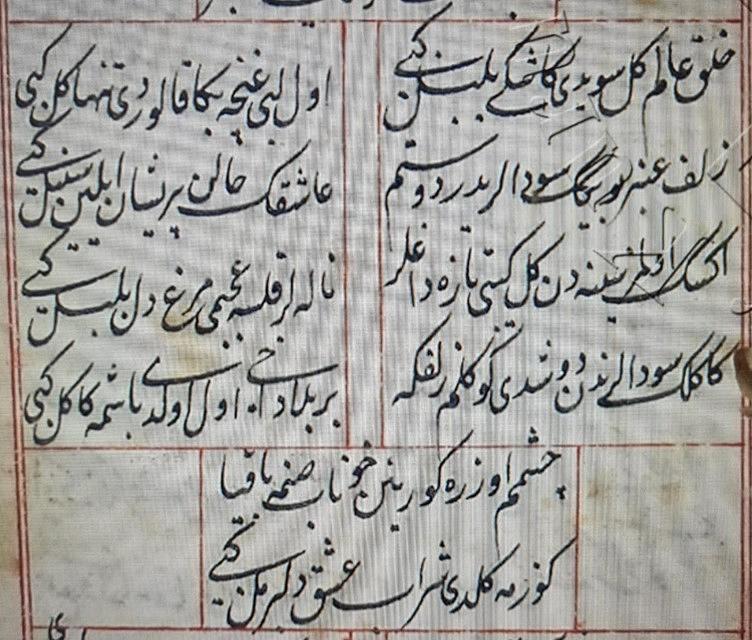 خلق عالم کل سویدی کاشکی بلبل کبی
اول لبی غنچه بکا قالوردی تنها کل کبی
زلف عنبر بویکک سودالریدر دوستم
عاشقک حالن پریشان ایلین سنبل کبی
اکسک اولمز سینه دن کل کبی تازه داغلر
ناله لر قلسه عجبمی مرغ دل بلبل کبی
کاکلک سودالرندن دوشدی کوکلم زلفکه
بر بلا دخی اول اولدی باشمه کاکل کبی
چشمم اوزره کورینن خوناب صنمه باقیا
کوزمه کلدی شراب عشق دلبر مل کبی